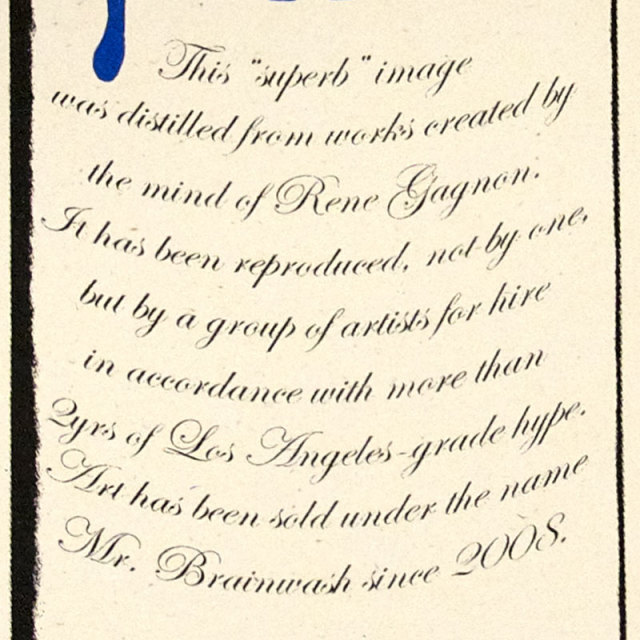 This "superb" image
was distilled from works created by
the mind of Rene Gagnon.
It has been reproduced, not by one,
but by a group of artists for hire
in accordance with more than
2yrs of Los Angeles-grade hype.
Art has been sold under the name
Mr. Brainwash since 2008.